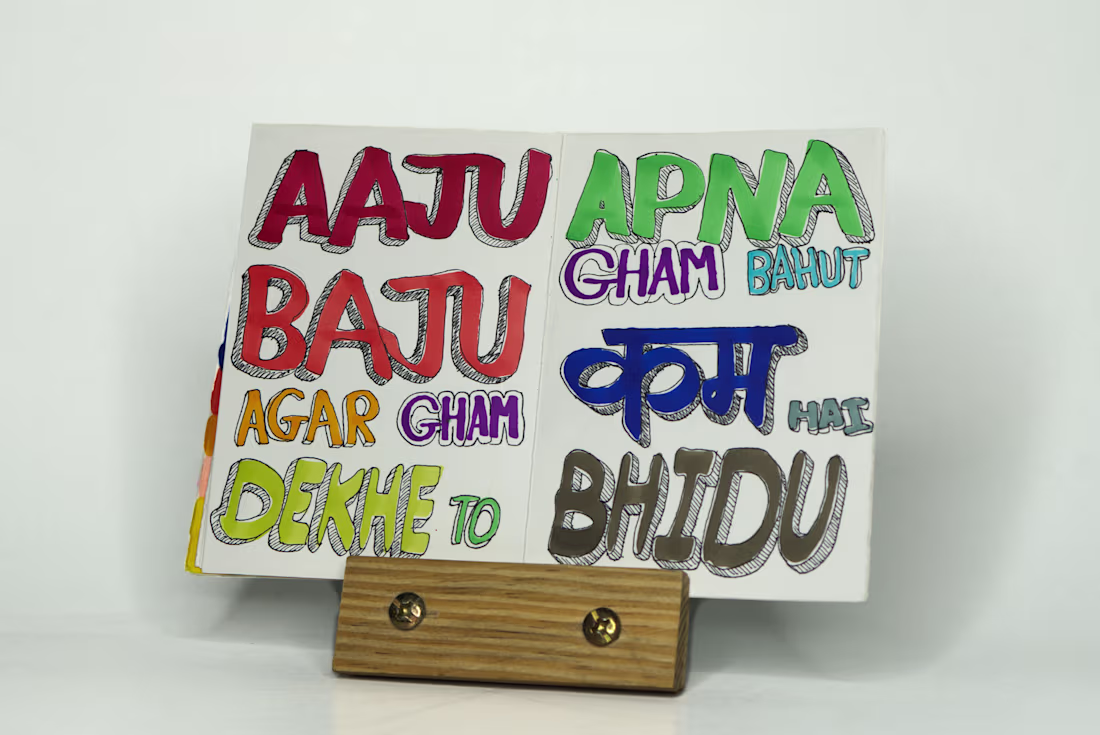 AAJU
BAJU
AGAR GHAM
DEKHE TO
APNA
GHAM BAHUT
कम HAI
BHIDU